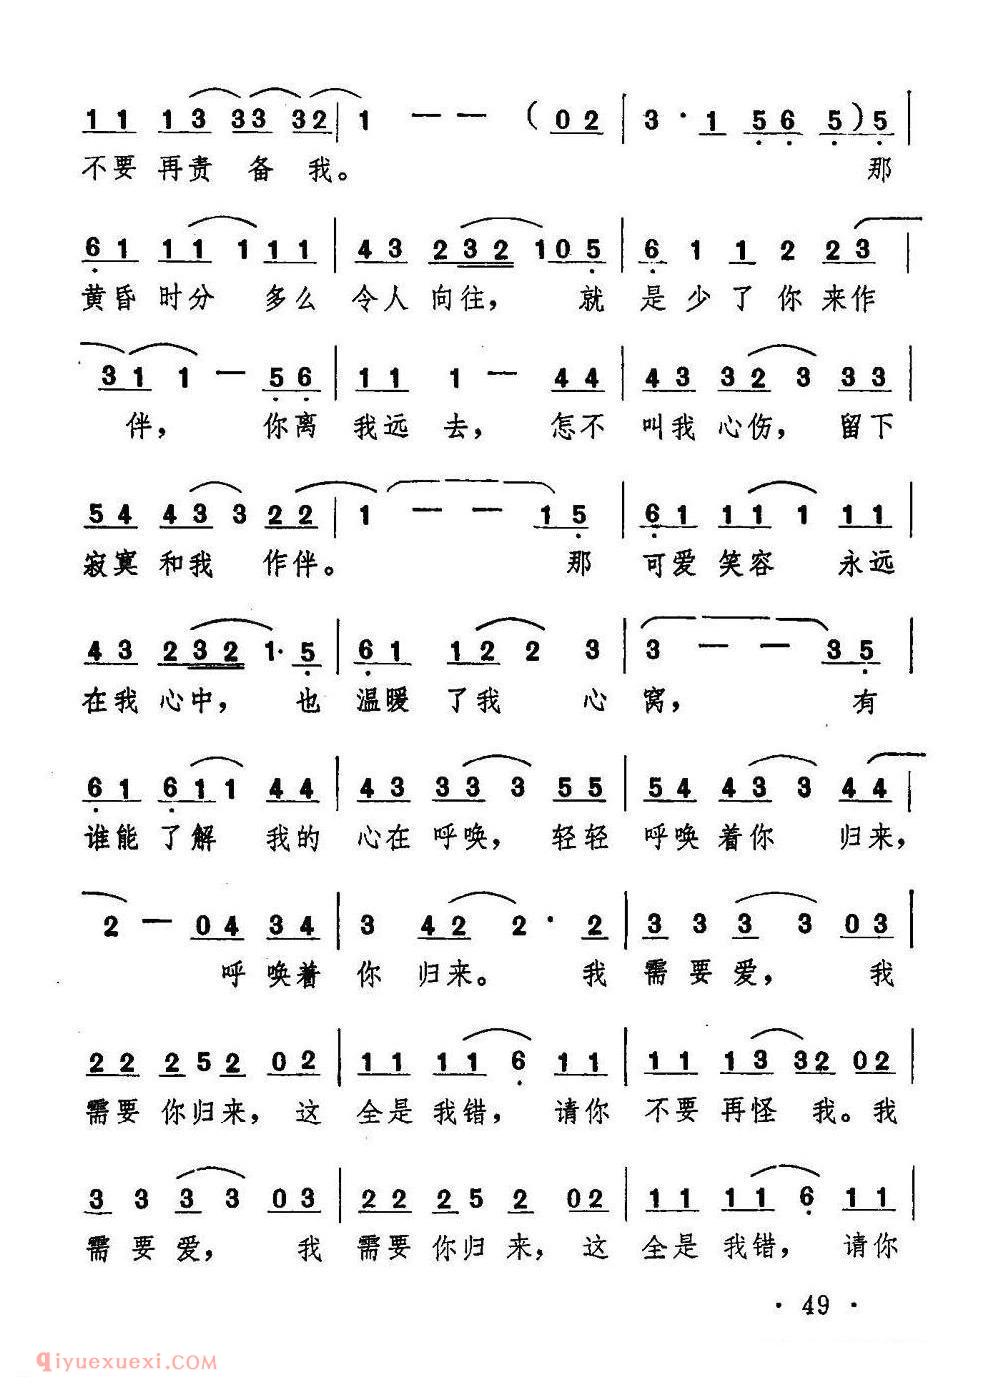 11 13 33 32 | 1 — — (02 | 3 · 1 56 5) 5 |
不要 再责 备 我。 那
61 11 1 11 | 43 232 1 05 | 6 1 1 2 2 23 |
黄昏 时分 多么 令人 向往， 就 是少了你来作
31 1 — 56 | 11 1 — 44 | 43 32 3 33 |
伴， 你离 我远 去， 怎不 叫我 心伤， 留下
54 43 3 22 | 1 — — 15 | 61 11 1 11 |
寂寞 和我 作伴。 那 可爱 笑容 永远
43 232 1· 5 | 61 12 2 3 | 3 — — 35 |
在我 心中， 也 温暖 了我 心 窝， 有
61 61 1 44 | 43 33 3 55 | 54 43 3 44 |
谁能 了解 我的 心在 呼唤， 轻轻 呼唤 着你 归来，
2 — 04 34 | 3 42 2 · 2 | 3 3 3 3 03 |
呼 唤着 你 归来。 我 需 要 爱， 我
22 2 5 2 02 | 11 11 6 11 | 11 13 32 02 |
需要 你归来， 这 全是 我错， 请你 不要 再怪 我。我
3 3 3 3 03 | 22 2 5 2 02 | 11 11 6 11
需 要 爱， 我 需要 你归 来， 这 全是 我错， 请你
· 49 ·
qiyuexuexi.COM